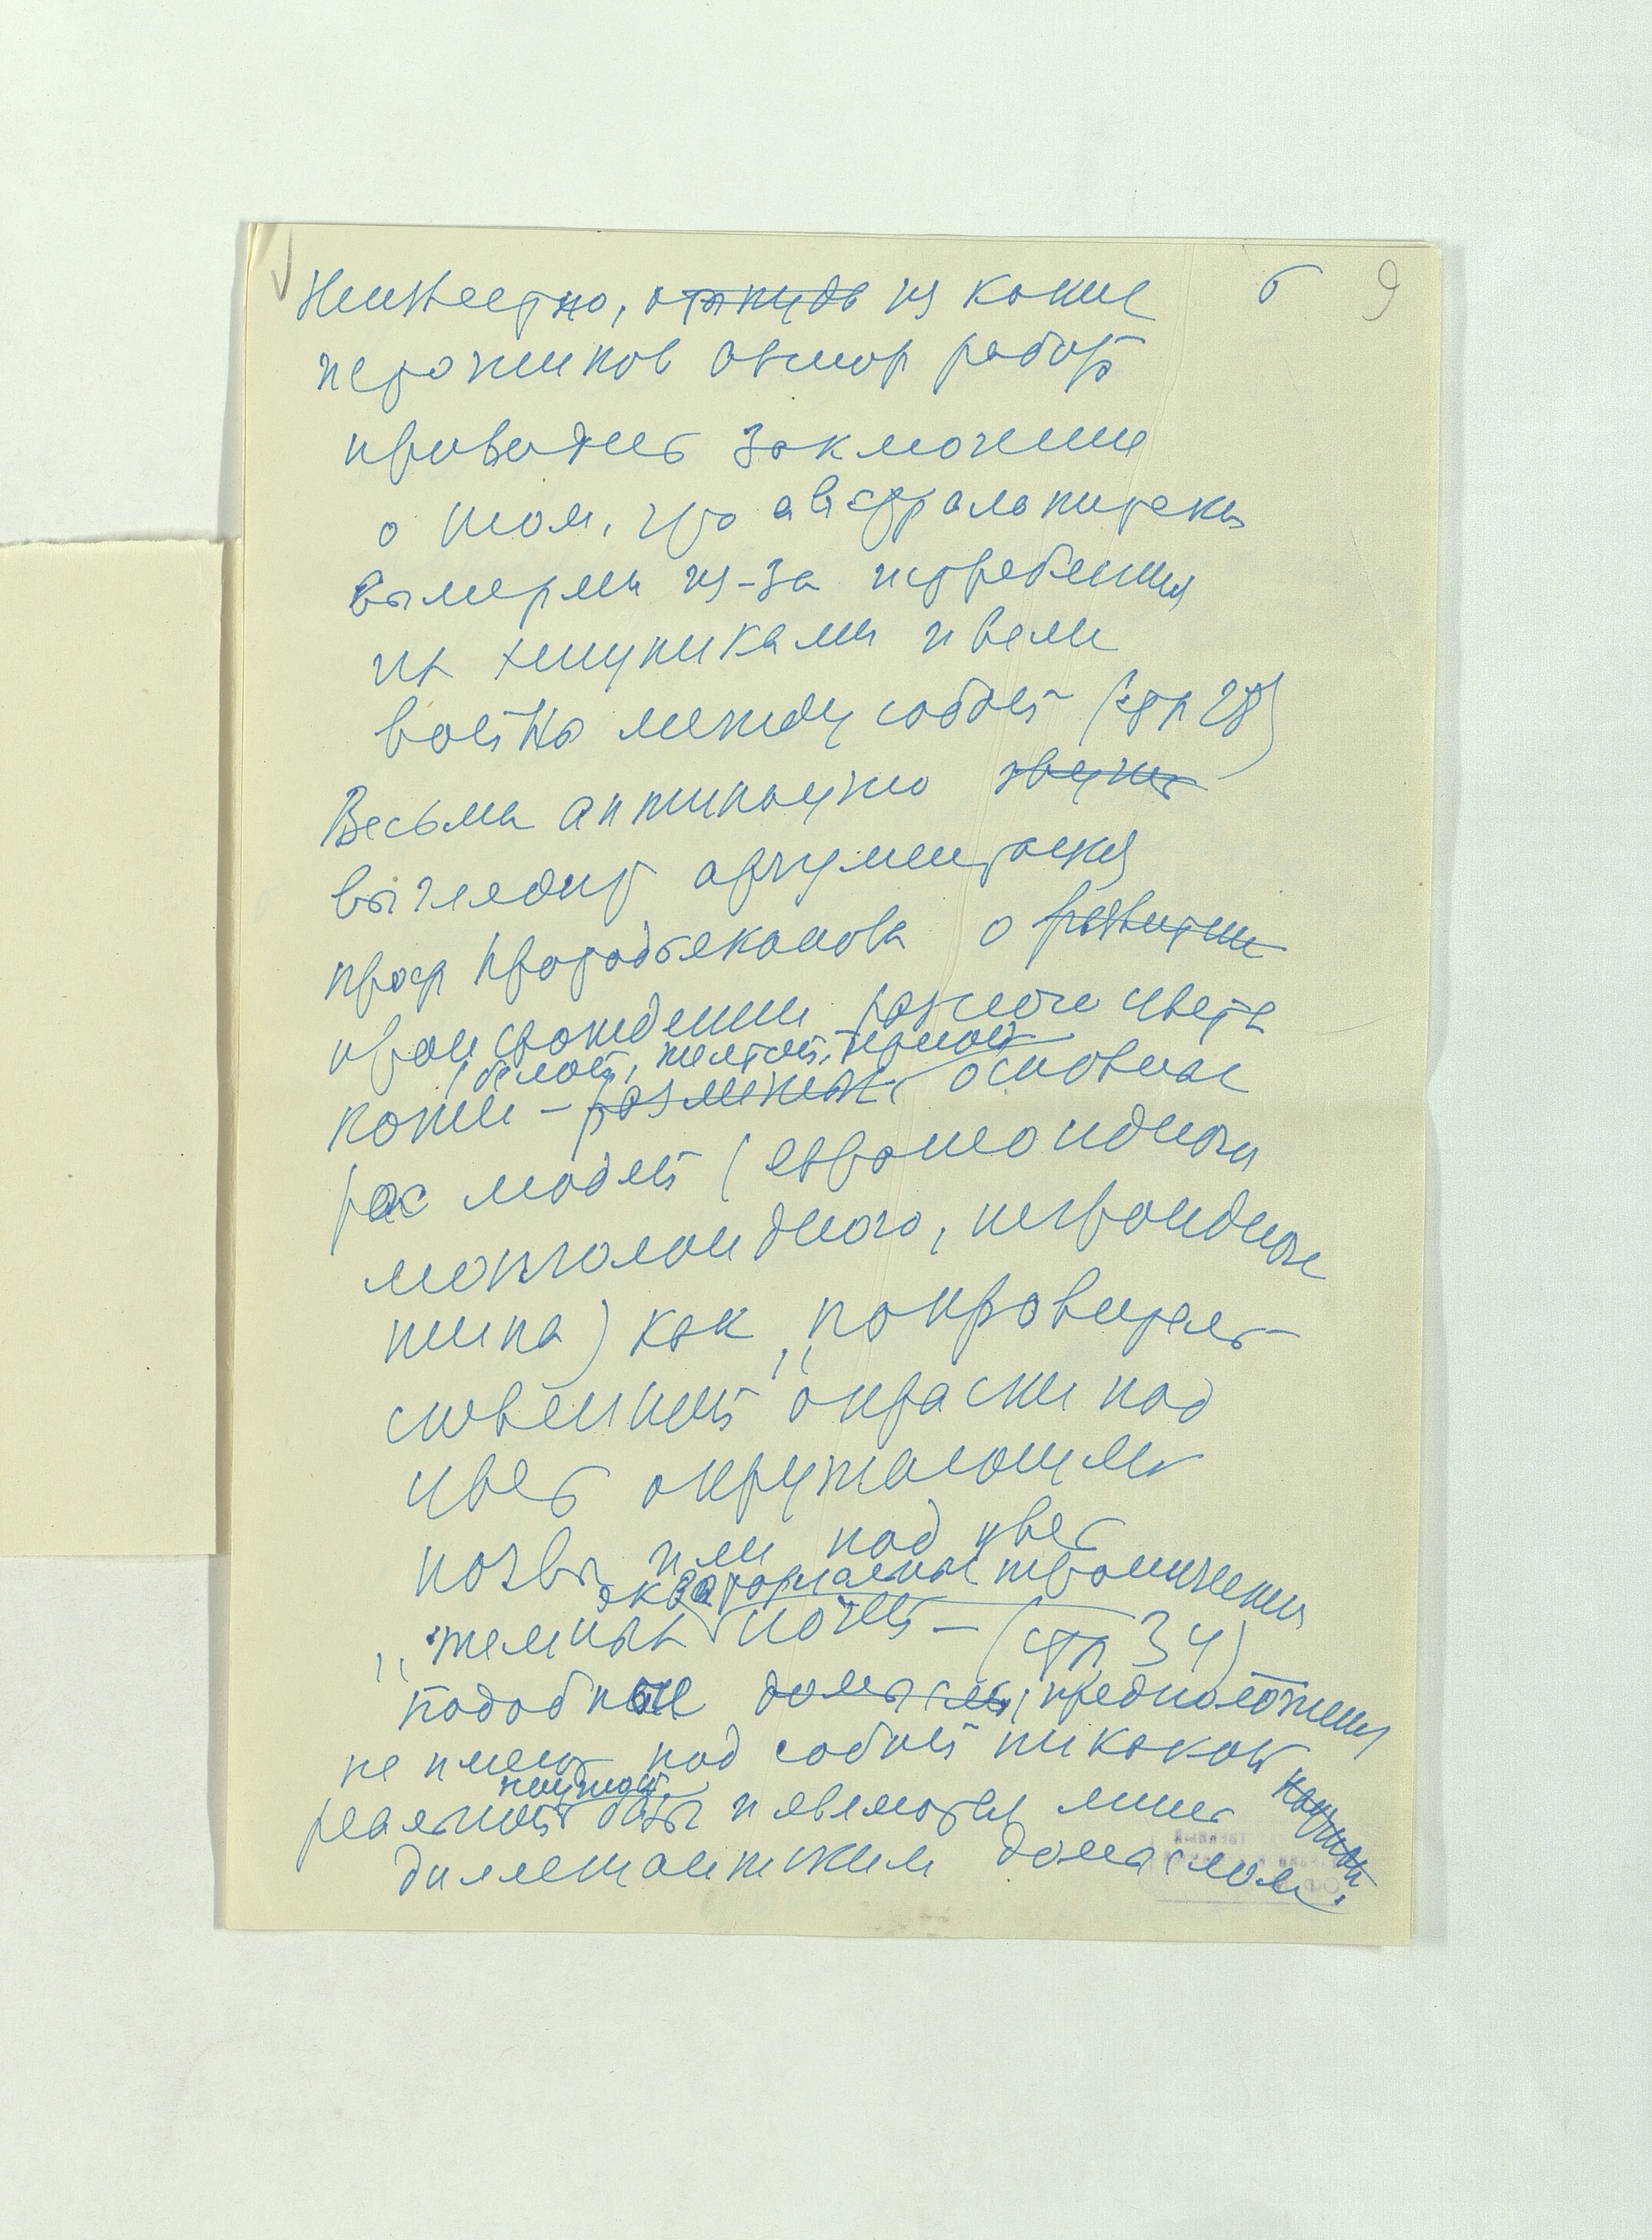 6 9
Неизвестно, откуда из каких
источников автор работы
приводит заключение
о том, что австралопитеки
вымерли из-за истребления
их хищниками и вели
войны между собой (стр 28)
Весьма антинаучно звучит
выглядит аргументация
проф Протодьяконова о развитии
происхождении разного цвета
(белой, желтой, черной
кожи – различных основных
рас людей (европеоидного
монголоидного, негроидного
типа) как „покровитель-
ственной окраски под
цвет окружающей
почвы или под цвет
экваториальных тропических
„темных ночей – (стр 34)
Подобные домыслы, предположения
не имеют под собой никакой научной
научной
реальной базы и являются лишь
дилетантским домыслом.